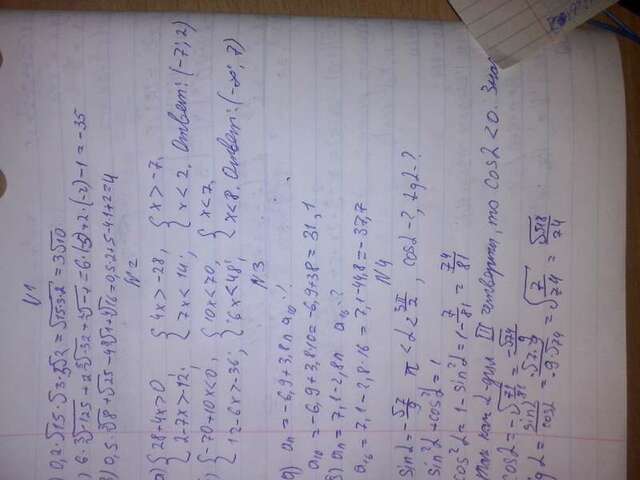 N1
0,2·√15·√3·√2 = √15·3·2 = 3√10
6·³√-125 + 2·⁵√-32 + ⁷√-1 = 6·(-5) + 2·(-2) - 1 = -35
0,5·³√8 + √25 - 4⁹√1 + ⁴√16 = 0,5·2 + 5 - 4·1 + 2 = 4
N2
а) { 28+4x>0 { 4x>-28, { x>-7,
2-7x>-12; 7x<14; x<2. Ответ: (-7; 2)
) { -70+10x<0, { 10x<70, { x<7,
12-6x>-36; 6x<48; x<8. Ответ: (-∞; 7)
N3
а) an = -6,9+3,8n a10 - ?
a10 = -6,9+3,8·10 = -6,9+38 = 31,1
an = 7,1-2,8n a16 ?
a16 = 7,1-2,8·16 = 7,1-44,8 = -37,7
N4
sinα = -√7/9 π<α<3π/2, cosα-?, tgα-?
sin²α+cos²α = 1
cos²α = 1-sin²α = 1-7/81 = 74/81
так как α для III четверти, то cosα<0.
cosα = -√74/81 = -√74/9
tgα = sinα/cosα = √7·9/9√74 = √7/74 = √518/74